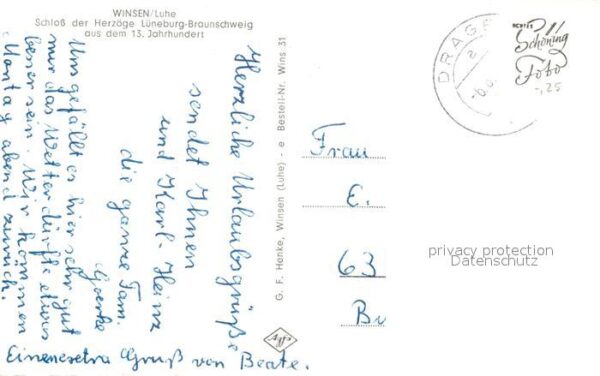 WINSEN/Luhe
Schloß der Herzöge Lüneburg-Braunschweig
aus dem 13. Jahrhundert
Herzliche Urlaubsgrüße
sendet Ihnen
und Karl-Heinz
die ganze Fam.
Goerke
Uns gefällt es hier sehr gut
nur das Wetter dürfte etwas
besser sein. Wir kommen
Montag abend zurück.
Einen extra Gruß von Beate.
G. F. Henke, Winsen (Luhe) - e Bestell-Nr. Wins 31
DRAGE
ECHTES
Schöning
Foto
-,25
Frau
E.
63
privacy protection
Datenschutz